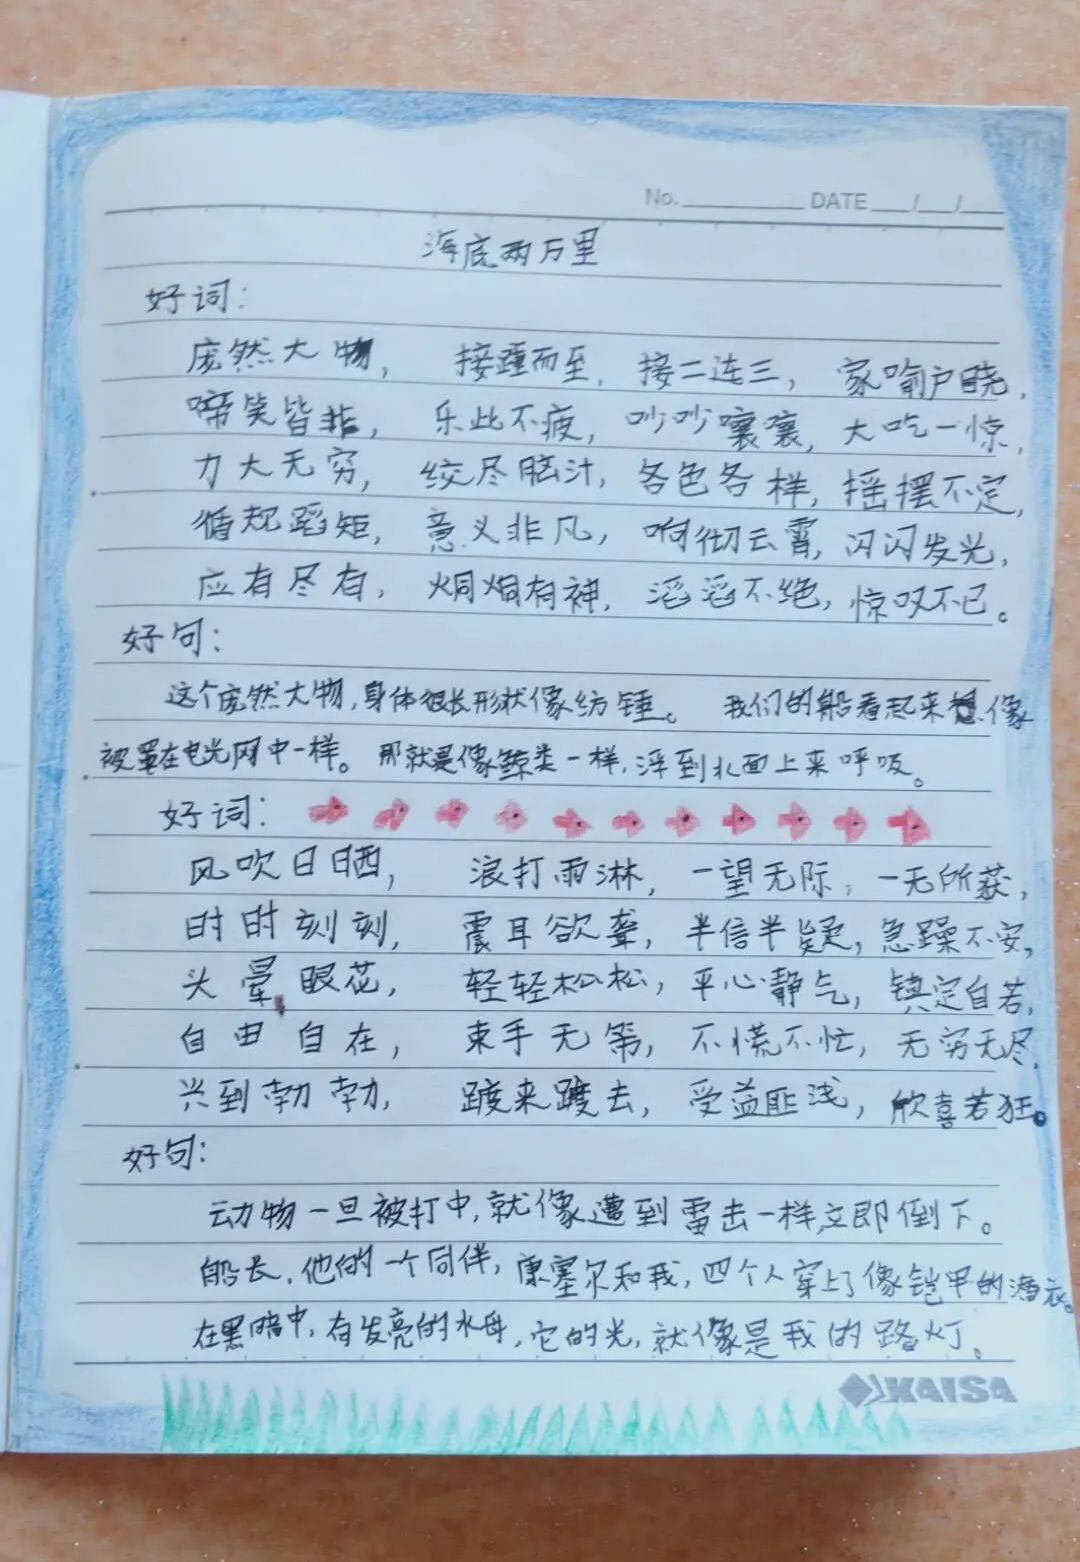 No. DATE / /
海底两万里
好词：
庞然大物， 接踵而至， 接二连三， 家喻户晓，
啼笑皆非， 乐此不疲， 吵吵嚷嚷， 大吃一惊，
力大无穷， 绞尽脑汁， 各色各样， 摇摆不定，
循规蹈矩， 意义非凡， 响彻云霄， 闪闪发光，
应有尽有， 炯炯有神， 滔滔不绝， 惊叹不已。
好句：
这个庞然大物，身体很长形状像纺锤。 我们的船看起来想像
被罩在电光网中一样。那就是像鲸类一样，浮到水面上来呼吸。
好词：
风吹日晒， 浪打雨淋， 一望无际， 一无所获，
时时刻刻， 震耳欲聋， 半信半疑， 急躁不安，
头晕眼花， 轻轻松松， 平心静气， 镇定自若，
自由自在， 束手无策， 不慌不忙， 无穷无尽，
兴到勃勃， 踱来踱去， 受益匪浅， 欣喜若狂。
好句：
动物一旦被打中，就像遭到雷击一样立即倒下。
船长，他的一个同伴，康塞尔和我，四个人穿上了像铠甲的潜衣。
在黑暗中，有发亮的水母，它的光，就像是我的路灯。
KAISA